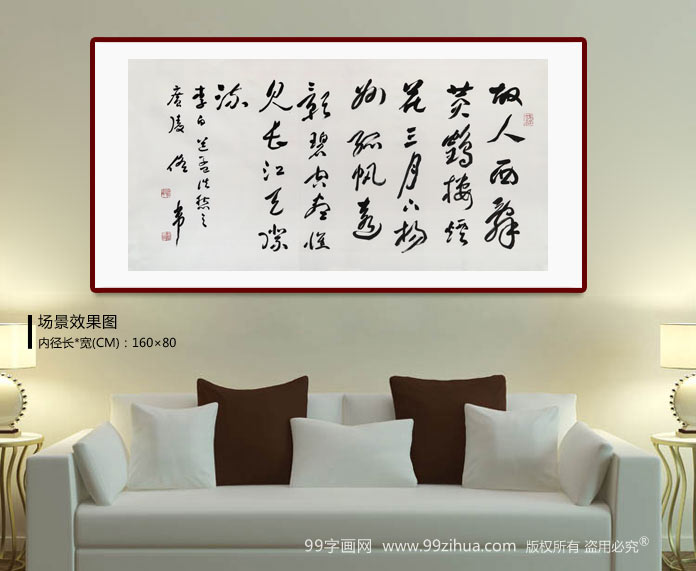 故人西辭
黄鶴楼煙
花三月下揚
州孤帆遠
影碧空盡惟
見長江天際
流
李白送孟浩然之
廣陵
场景效果图
内径长*宽(CM)：160×80
99字画网 www.99zihua.com 版权所有 盗用必究®